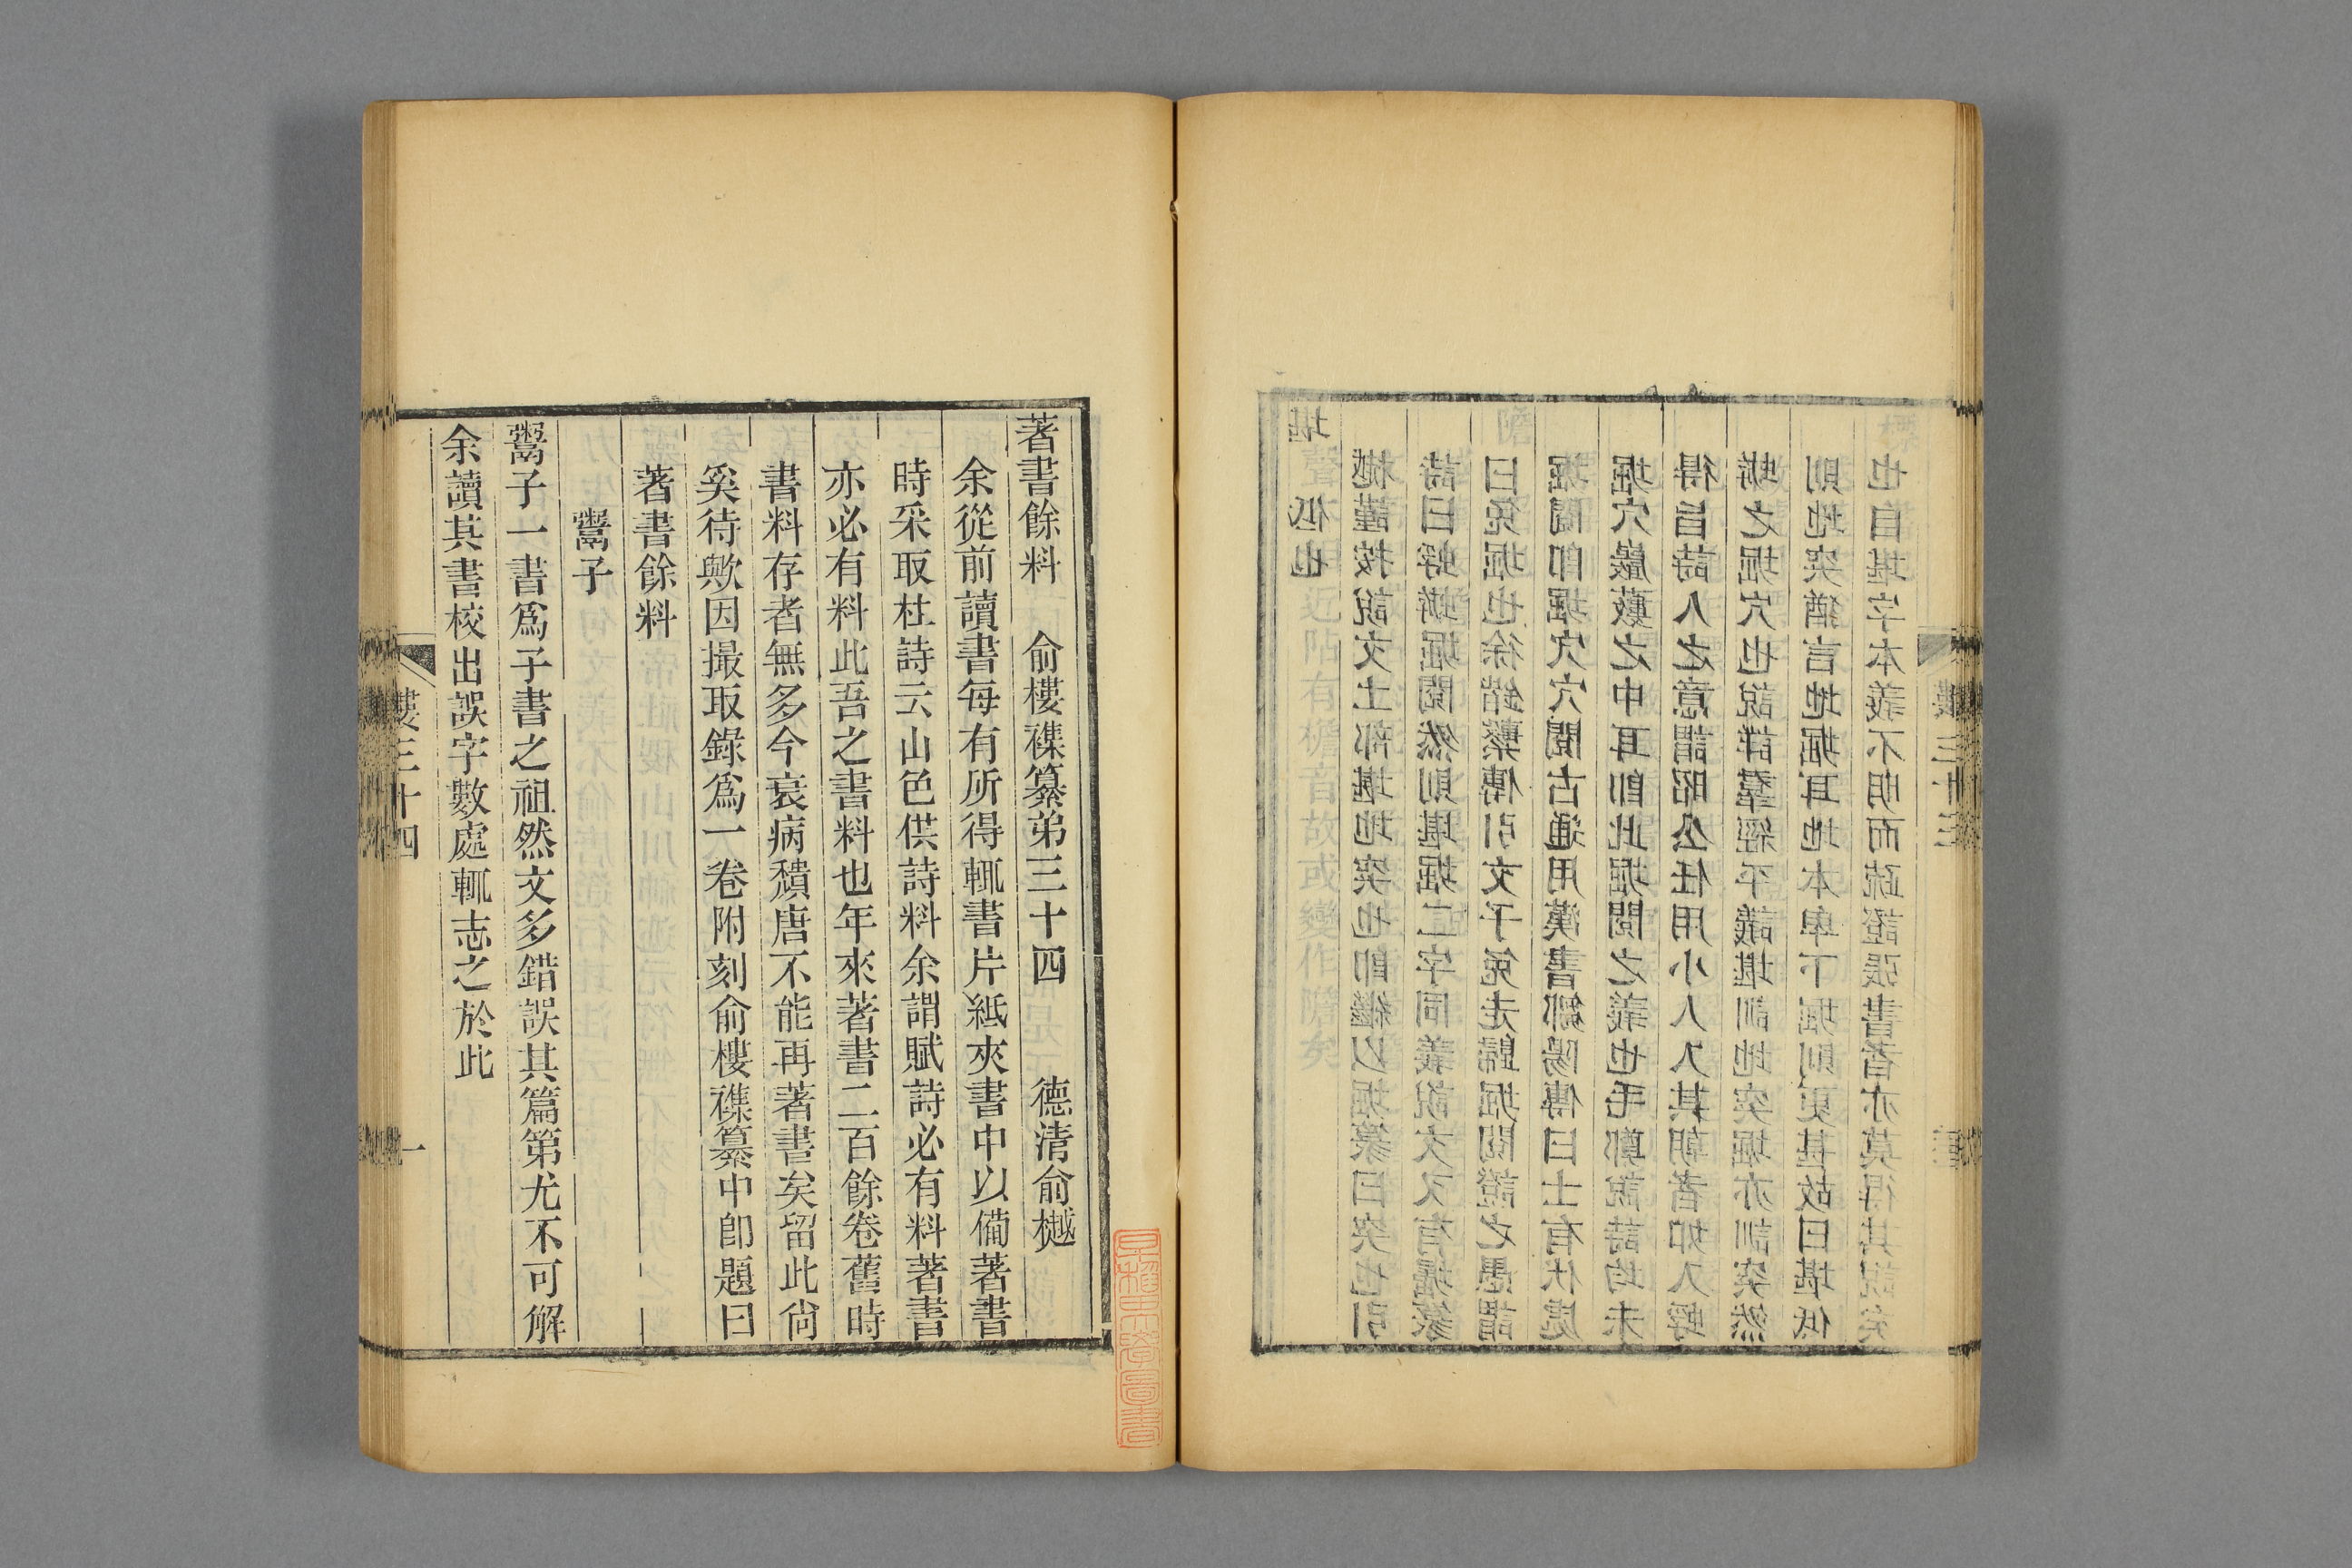 堪　低也
樾謹按說文土部堪地突也卽繼以堀篆曰突也引
詩曰蜉蝣堀閱然則堪堀二字同義說文又有堀篆
曰兔堀也徐鍇繫傳引文子兔走歸堀閱證之愚謂
堀閱卽堀穴穴閱古通用漢書鄒陽傳曰士有伏處
堀穴巖藪之中耳卽此堀閱之義也毛鄭說詩均未
得旨詩人之意謂昭公任用小人入其朝者如入蜉
蝣之堀穴也說詳羣經平議堪訓地突堀亦訓突然
則地突猶言地堀耳地本卑下堀則更甚故曰堪低
也自堪字本義不明而疏證張書者亦莫得其說矣
著書餘料　俞樓襍纂弟三十四　　德清俞樾
余從前讀書每有所得輒書片紙夾書中以備著書
時采取杜詩云山色供詩料余謂賦詩必有料著書
亦必有料此吾之書料也年來著書二百餘卷舊時
書料存者無多今衰病穨唐不能再著書矣留此尙
奚待歟因撮取錄爲一卷附刻俞樓襍纂中卽題曰
著書餘料
鬻子
鬻子一書爲子書之祖然文多錯誤其篇第尤不可解
余讀其書校出誤字數處輒志之於此
樓三十四　一